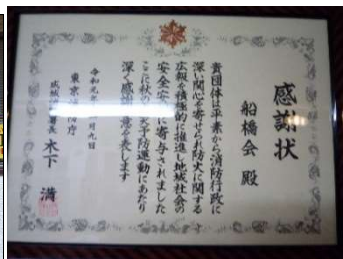 感謝状
船橋会 殿
貴団体は平素から消防行政に
深い関心を寄せられ防火に関する
広報を積極的に推進し地域社会の
安全に寄与されました
ここに秋の火災予防運動にあたり
深く感謝の意を表します
令和元年 月九日
東京消防庁
成城 長 木下 満